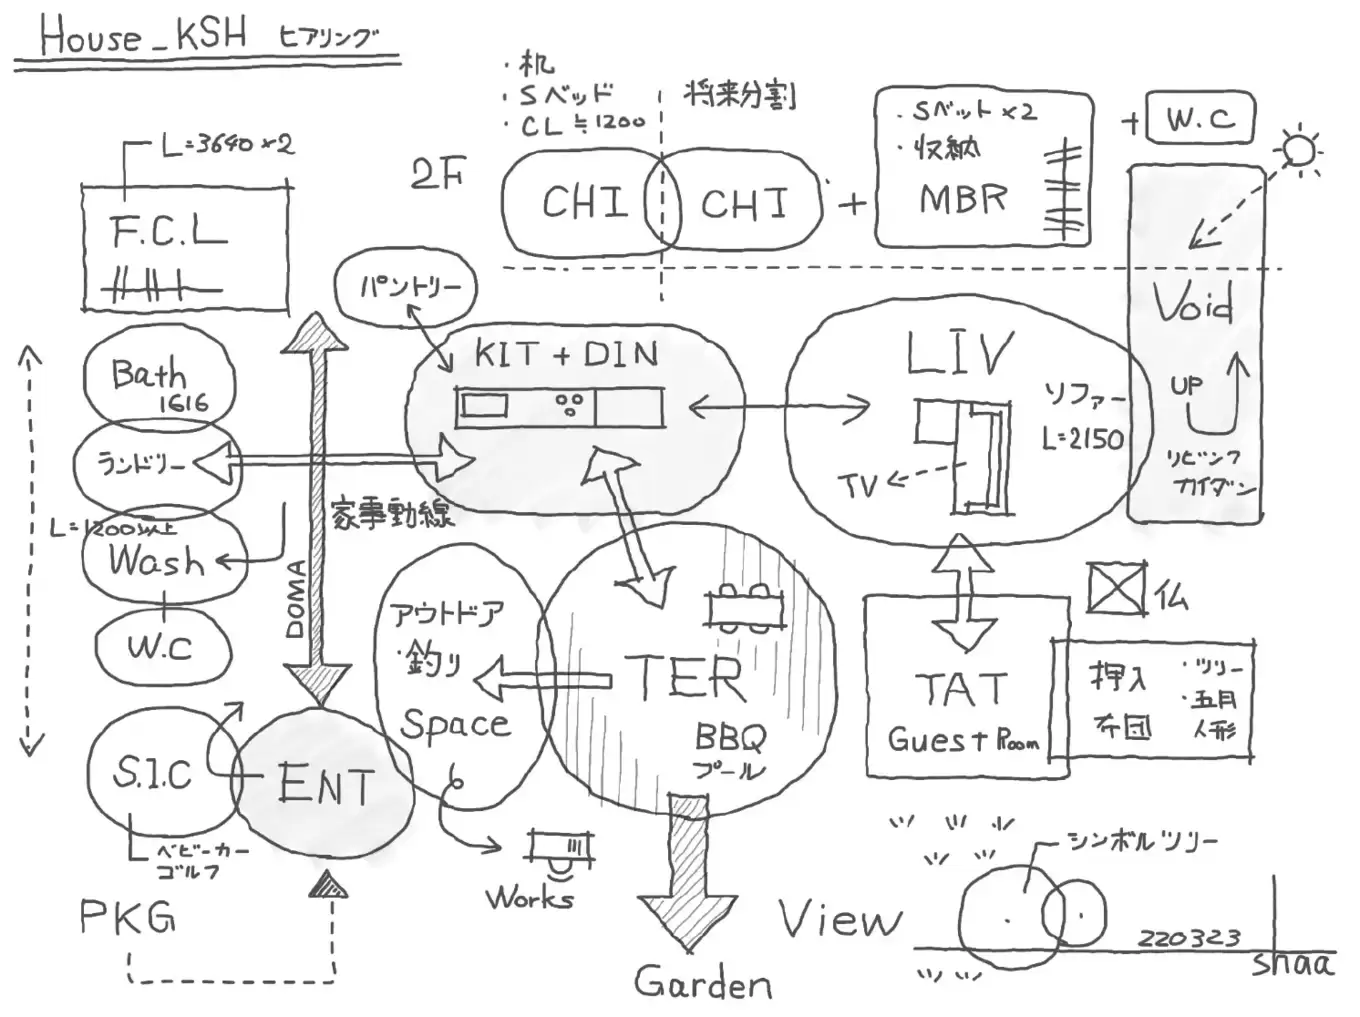 House_KSH ヒアリング
・机
・Sベッド
・CL≒1200
将来分割
2F
CHI
CHI
+
・Sベット×2
・収納
MBR
+
W.C
L=3640×2
F.C.L
パントリー
Bath
1616
ランドリー
L=1200以上
Wash
W.C
S.I.C
ベビーカー
ゴルフ
PKG
DOMA
家事動線
ENT
KIT+DIN
LIV
ソファー
L=2150
TV
Void
UP
リビング
カイダン
アウトドア
・釣り
Space
Works
TER
BBQ
プール
Garden
TAT
Guest Room
仏
押入
布団
・ツリー
・五月
人形
View
シンボルツリー
220323
shaa